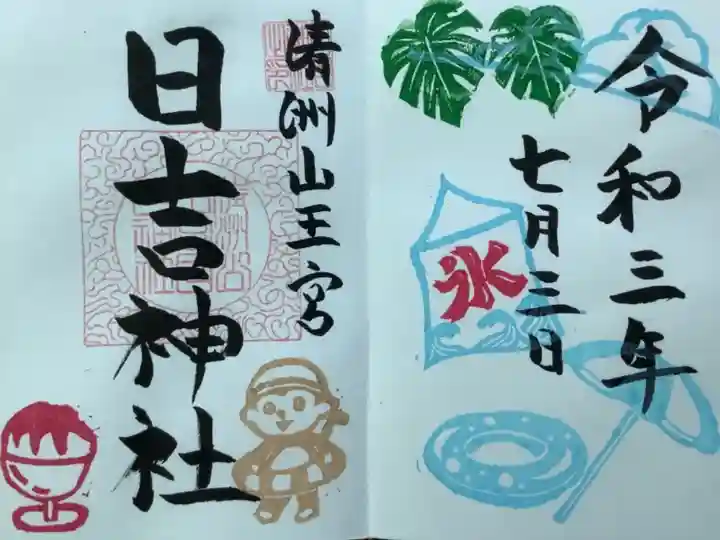 令和三年
七月三日
氷
清洲山王宮
日吉神社